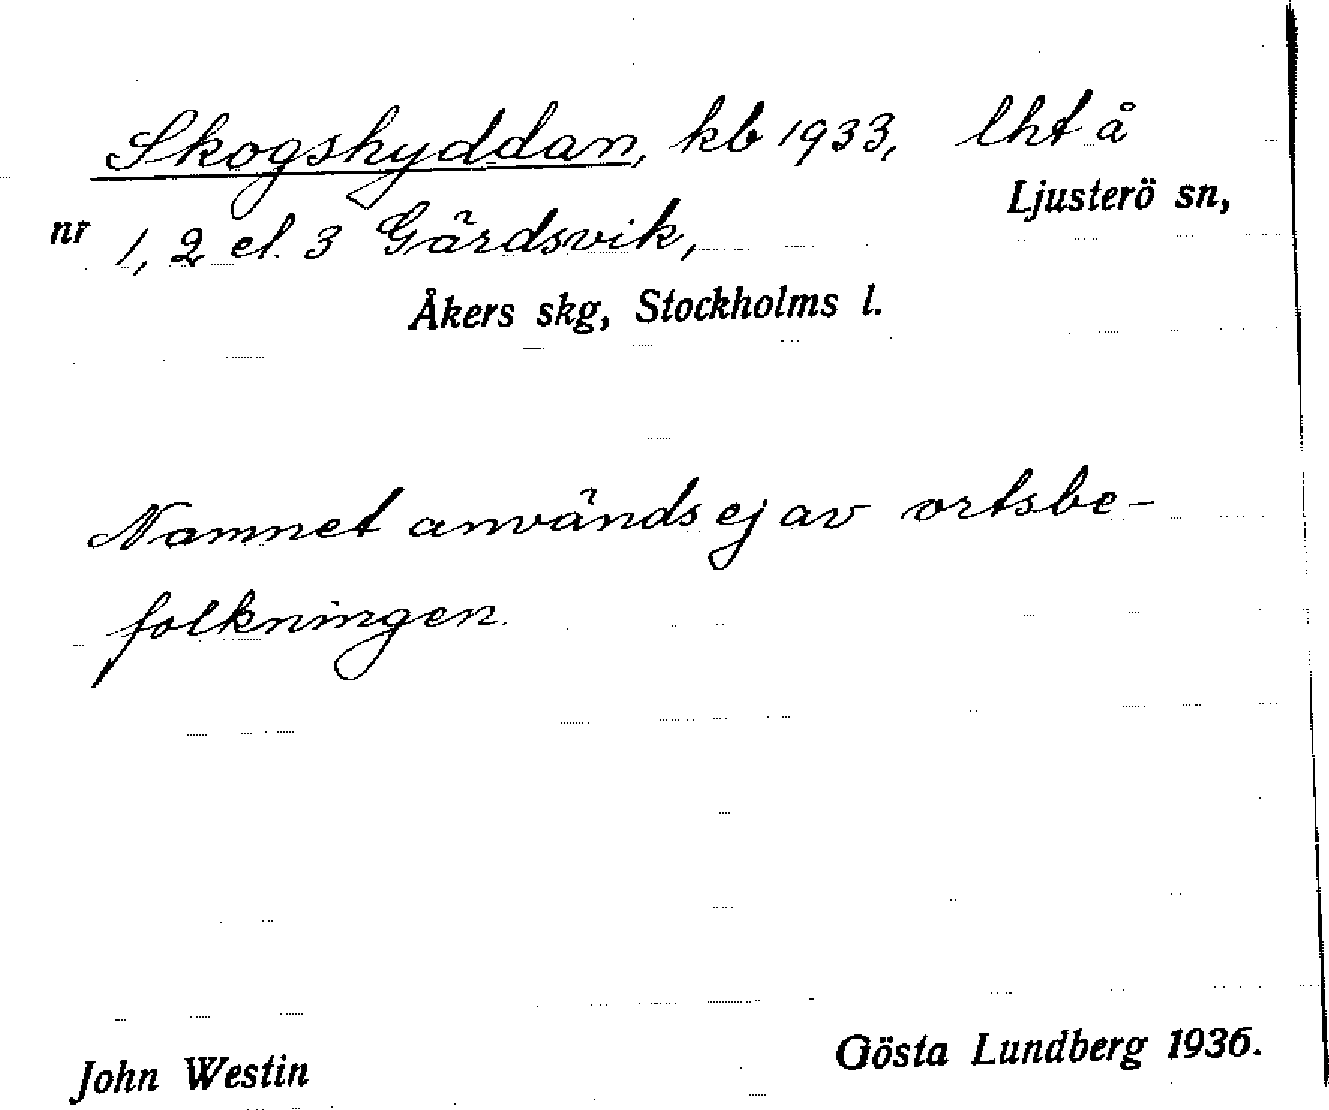 Skogshyddan, kb 1933, lht å
Ljusterö sn,
nr 1, 2 el. 3 Gärdsvik,
Åkers skg, Stockholms l.
Namnet används ej av ortsbe-
folkningen.
John Westin
Gösta Lundberg 1936.